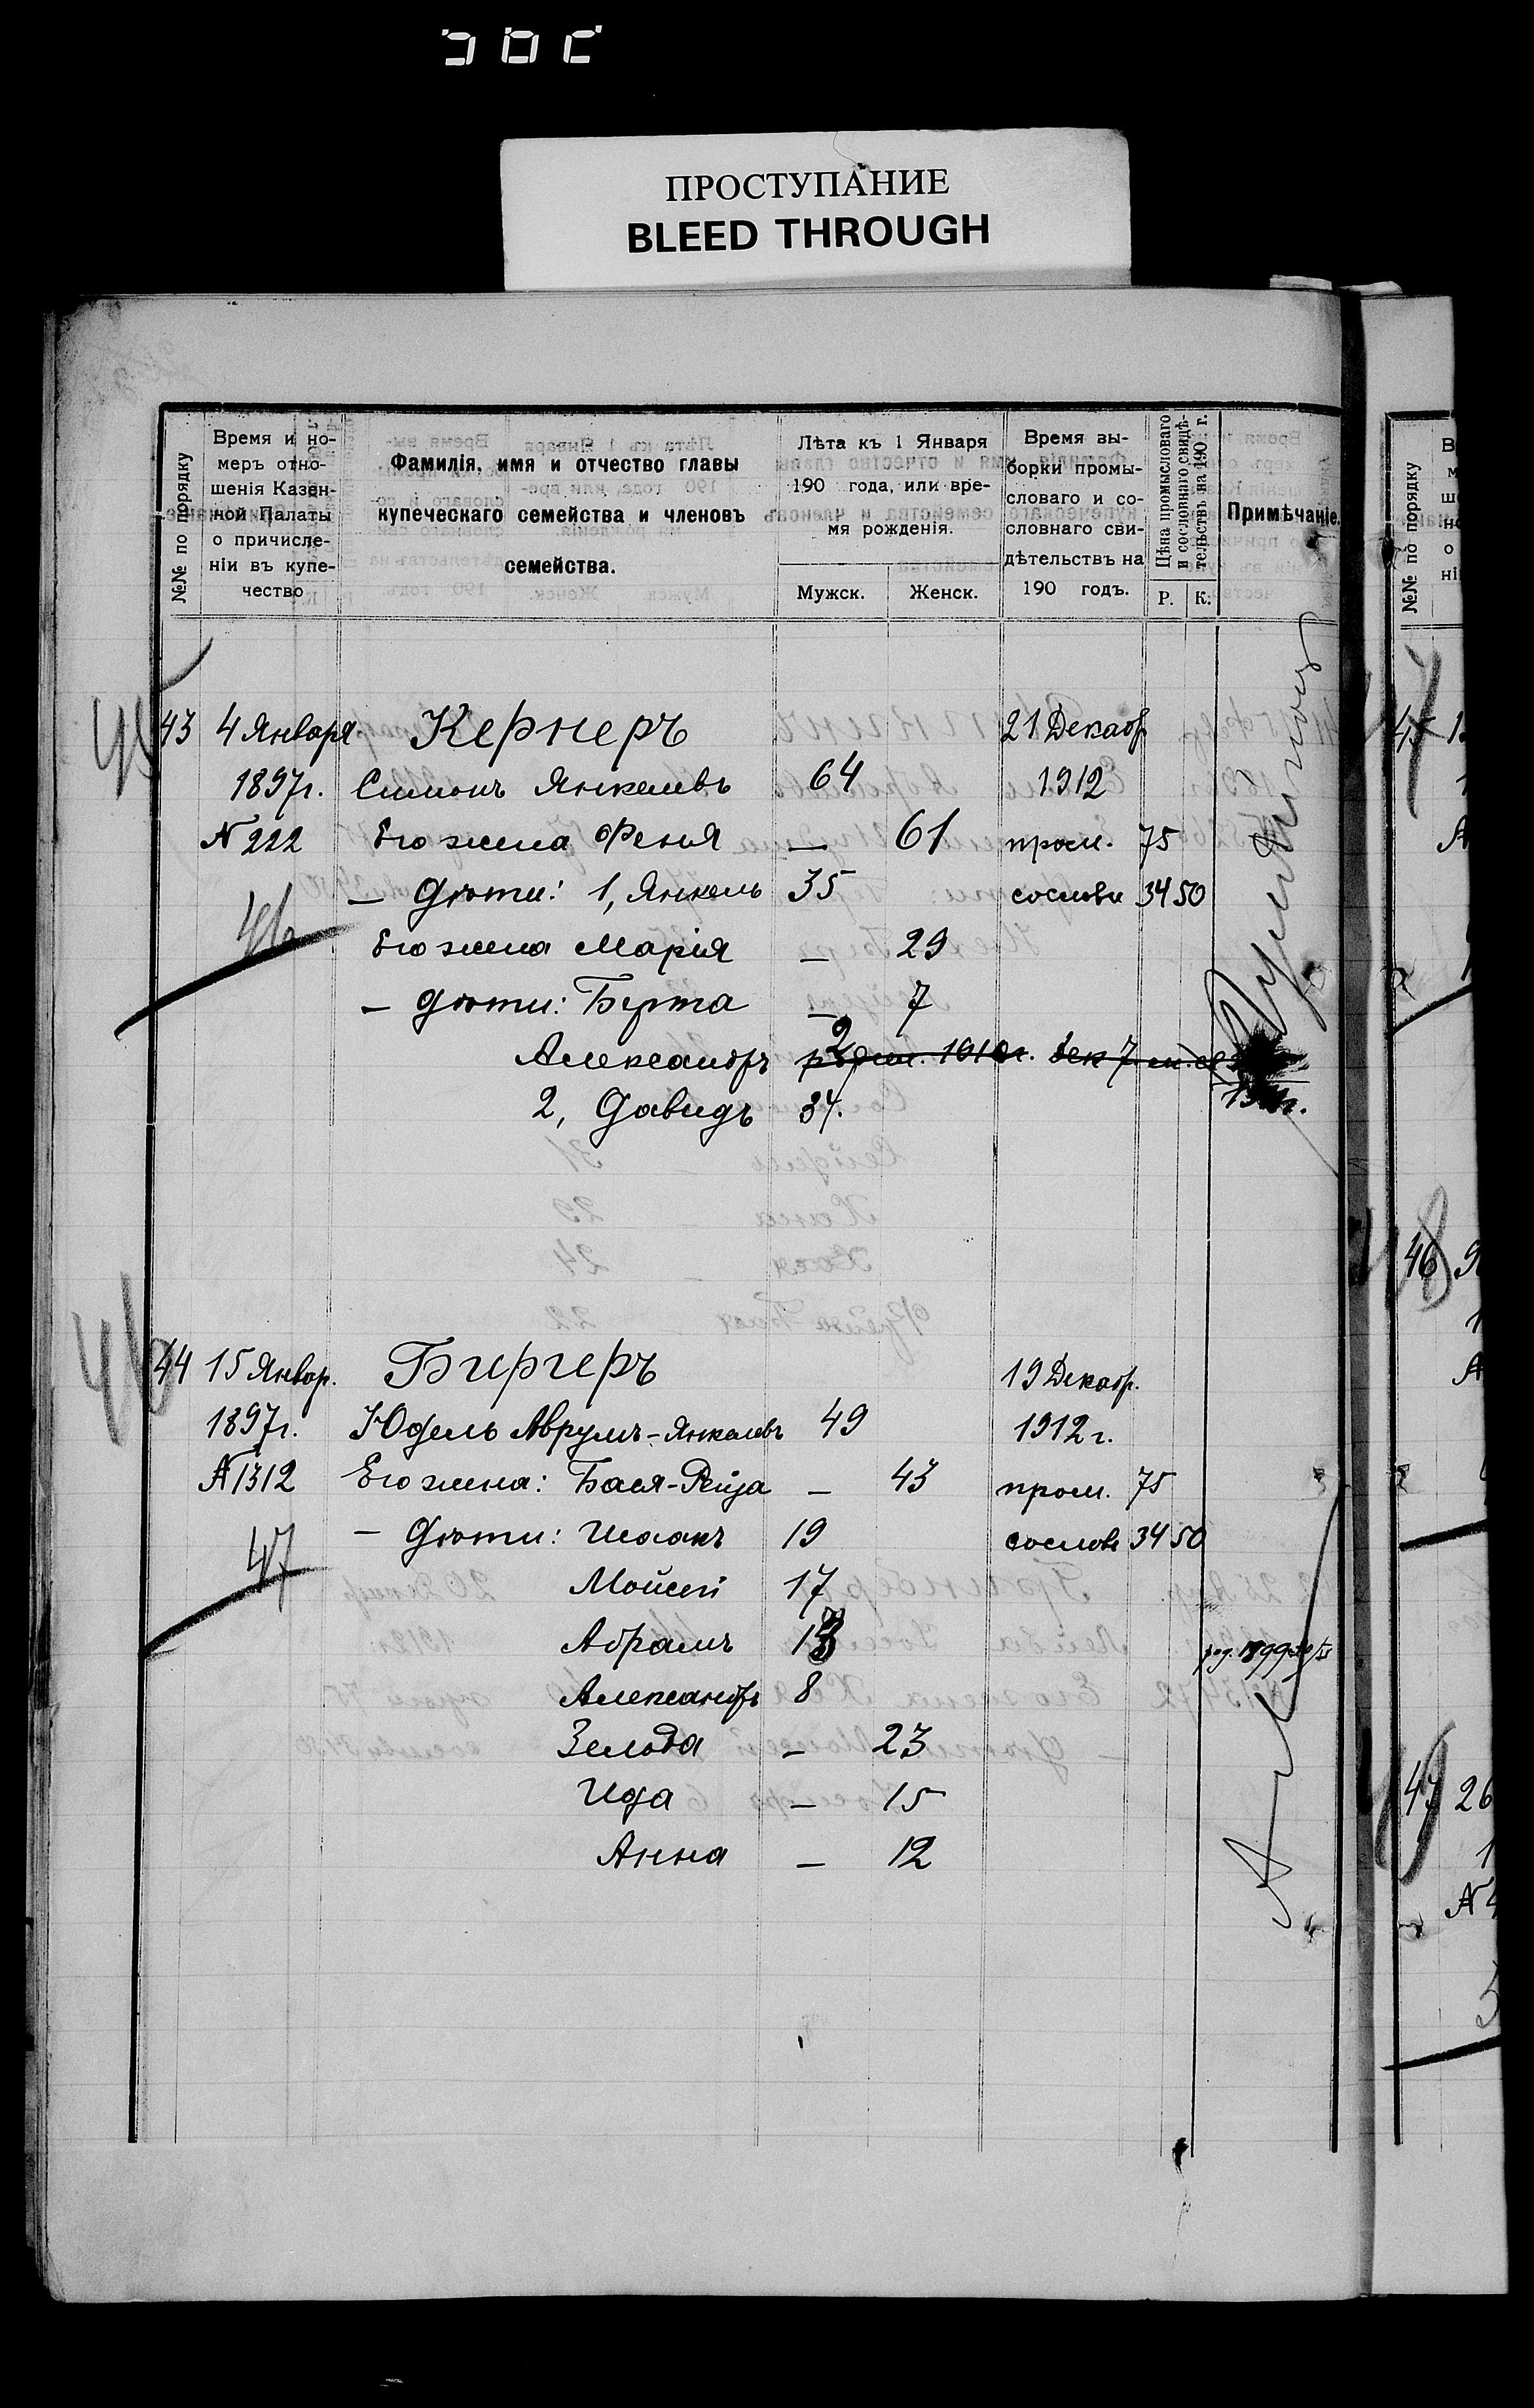 ПРОСТУПАНИЕ
BLEED THROUGH
№№ по порядку
Время и но-
меръ отно-
шенія Казен-
ной Палаты
о причисле-
ніи въ купе-
чество
Фамилія, имя и отчество главы
купеческаго семейства и членовъ
семейства.
Лѣта къ 1 Января
190 года, или вре-
мя рожденія.
Мужск. Женск.
Время вы-
борки промы-
словаго и со-
словнаго сви-
дѣтельствъ на
190 годъ.
Цѣна промысловаго
и сословнаго свидѣ-
тельствъ на 190 г.
Р. К.
Примѣчаніе.
№№ по порядку
45
43 4 Января Кернеръ 21 Декабр
1897г. Симонъ Янкелевъ 64 1912
N 222 Его жена Феня — 61 пром. 75
— Дѣти: 1, Янкель 35 сословн 34 50
46
Его жена Марія — 29
— Дѣти: Берта — 7
Александръ 2
2, Давидъ 34.
46
44 15 Январ. Биргеръ 19 Декабр.
1897г. Юдель Аврумъ-Янкелевъ 49 1912 г.
N 1312 Его жена: Бася-Рейза — 43 пром. 75
— Дѣти: Исаакъ 19 сословн 34 50
47
Мойсей 17
Абрамъ 13
Александръ 8
Зельда — 23
Ида — 15
Анна — 12
45
46
47 26